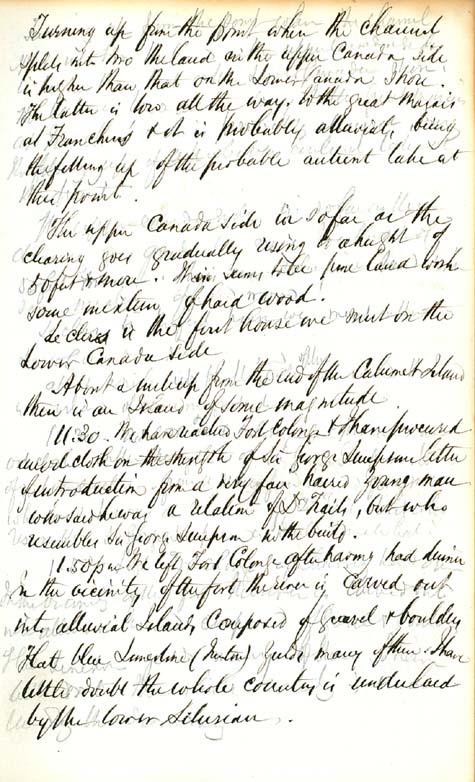 Turning up from the Point when the channel
splits into two the land on the upper Canada side
is higher than that on the Lower Canada shore.
The latter is low all the way to the great Marais
at Franchins & it is probably alluvial, being
the filling up of the probable antient lake at
this point.
The upper Canada side in so far as the
clearing goes gradually rising to a height of
50 feet & more. This seems to be fine land with
some mixture of hard wood.
Leclerc is the first house we met on the
Lower Canada side
About a mile up from the end of the Calumet Island
there is an Island of some magnitude.
11.30. We have reached Fort Colonge & I have procured
oiled cloth on the strength of Sir George Simpsons letter
of introduction from a very fair haired young man
who said he was a relation of Dr , but who
resembles Sir George Simpson in the build.
1.50 pm We left Fort Colonge after having had dinner
in the vicinity of the fort the river is carved out
into alluvial Islands composed of gravel & boulders
Flat blue Limestone () guide many of them. I have
little doubt the whole country is underlaid
by the lower Silurian.